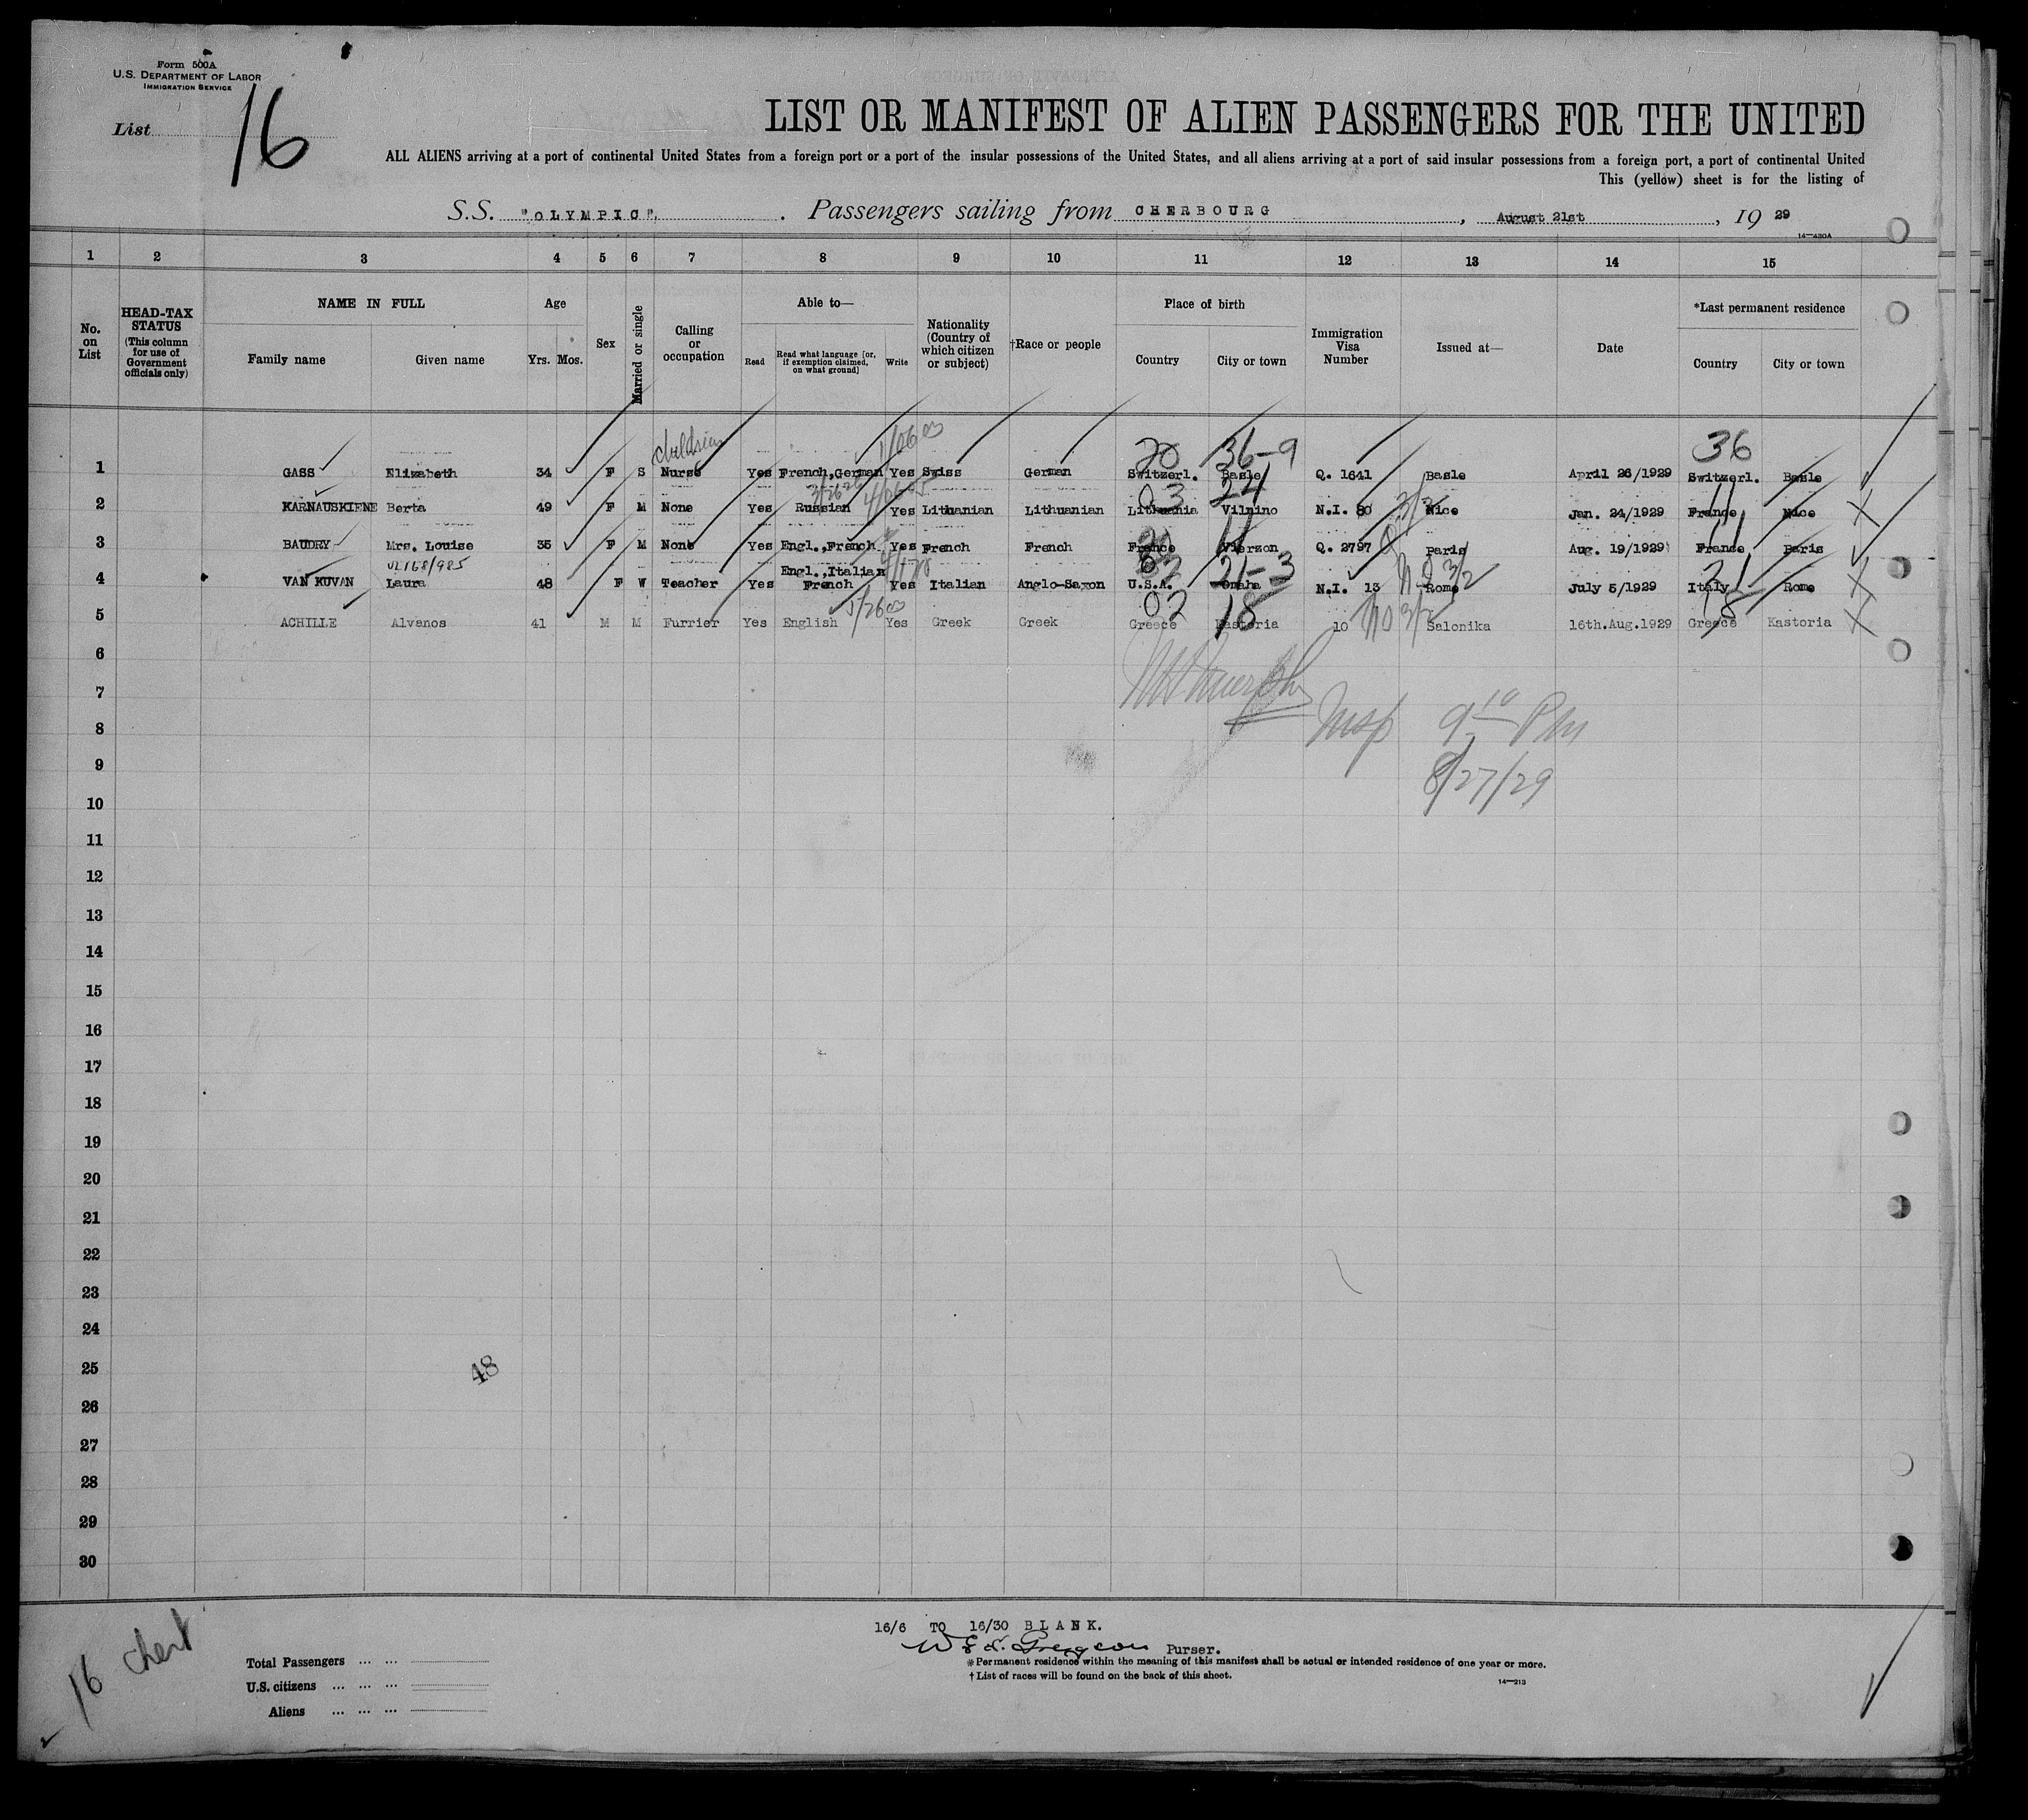 Form 500A
U.S. DEPARTMENT OF LABOR
IMMIGRATION SERVICE
List 16
LIST OR MANIFEST OF ALIEN PASSENGERS FOR THE UNITED
ALL ALIENS arriving at a port of continental United States from a foreign port or a port of the insular possessions of the United States, and all aliens arriving at a port of said insular possessions from a foreign port, a port of continental United
This (yellow) sheet is for the listing of
S.S. "OLYMPIC", . Passengers sailing from CHERBOURG , August 21st , 19 29
14—430A
1 2 3 4 5 6 7 8 9 10 11 12 13 14 15
No. on List
HEAD-TAX STATUS (This column for use of Government officials only)
NAME IN FULL
Family name Given name
Age
Yrs. Mos.
Sex
Married or single
Calling or occupation
Able to—
Read Read what language [or, if exemption claimed, on what ground] Write
Nationality (Country of which citizen or subject)
†Race or people
Place of birth
Country City or town
Immigration Visa Number
Issued at—
Date
*Last permanent residence
Country City or town
children 20 36-9 36
1 GASS Elizabeth 34 F S Nurse Yes French,German Yes Swiss German Switzerl. Basle Q. 1641 Basle April 26/1929 Switzerl. Basle
03 24 11
2 KARNAUSKIENE Berta 49 F M None Yes Russian Yes Lithuanian Lithuanian Lithuania Vilnino N.I. 80 3/2 Nice Jan. 24/1929 France Nice X
20 11 11
3 BAUDRY Mrs. Louise 35 F M None Yes Engl.,French Yes French French France Vierzon Q. 2797 Paris Aug. 19/1929 France Paris
21-3 3/2 21
4 VAN KUVAN Laura 48 F W Teacher Yes Engl.,Italian French Yes Italian Anglo-Saxon U.S.A. Omaha N.I. 13 Rome July 5/1929 Italy Rome X
02 18 3/2 18
5 ACHILLE Alvanos 41 M M Furrier Yes English Yes Greek Greek Greece Kastoria 10 Salonika 16th.Aug.1929 Greece Kastoria X
6
7
Insp 9 10 PM
8
8/27/29
9
10
11
12
13
14
15
16
17
18
19
20
21
22
23
24
25
48
26
27
28
29
30
16/6 TO 16/30 BLANK.
Purser.
16 cherb
Total Passengers ... ...
U.S. citizens ... ... ...
Aliens ... ... ...
*Permanent residence within the meaning of this manifest shall be actual or intended residence of one year or more.
†List of races will be found on the back of this sheet.
14—213